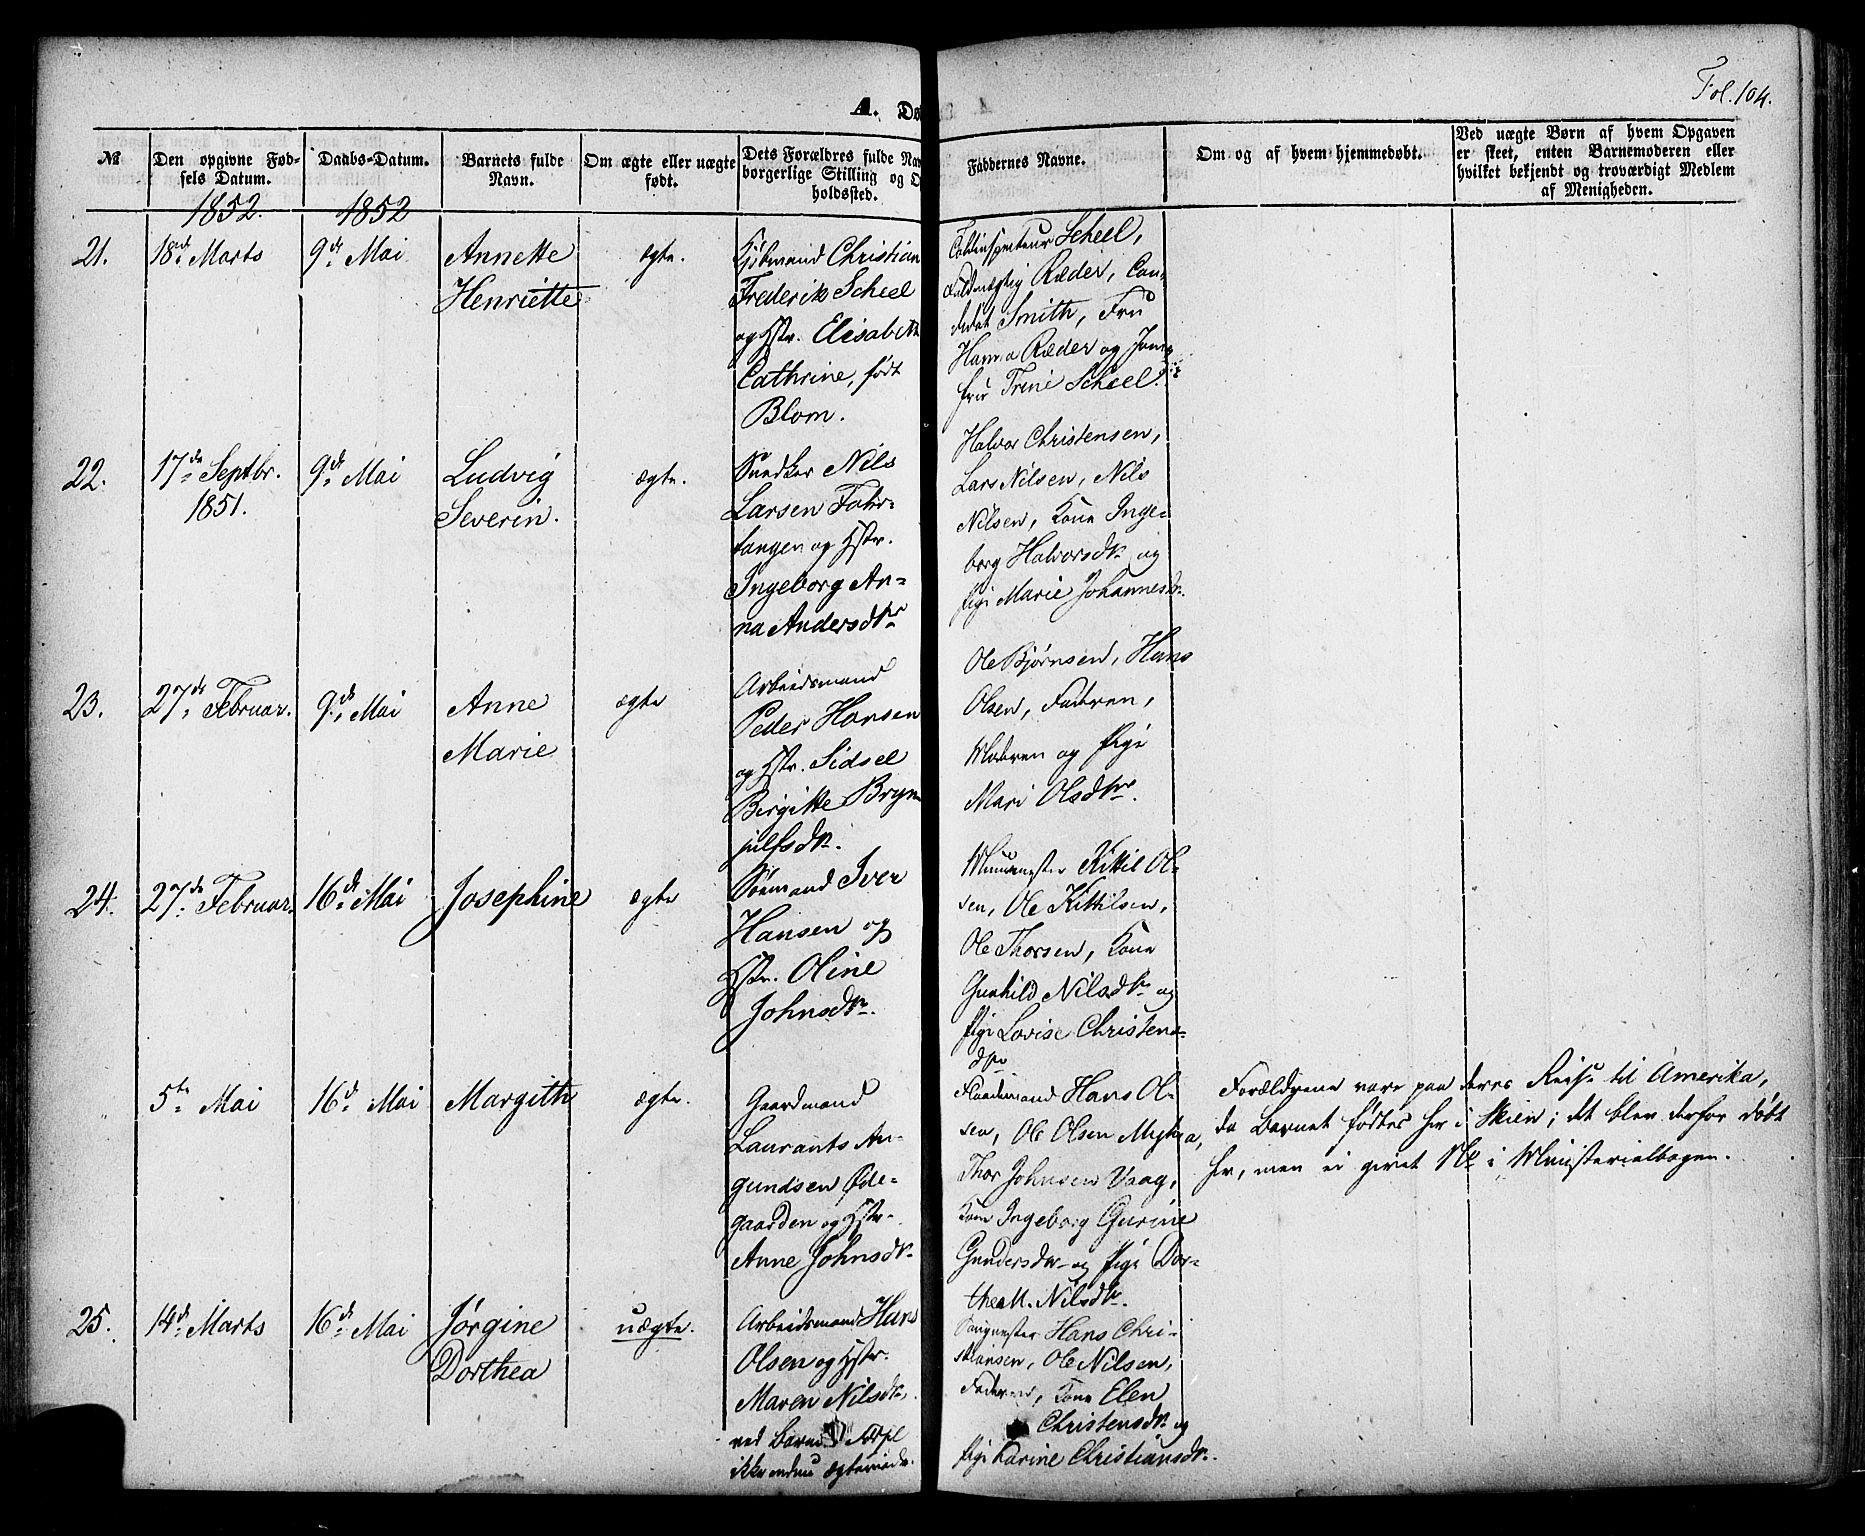 Fol. 104.
A. Dø
№
Den opgivne Fød-
sels Datum.
Daabs-Datum.
Barnets fulde
Navn.
Om ægte eller uægte
født.
Dets Forældres fulde Nav
borgerlige Stilling og O
holdssted.
Faddernes Navne.
Om og af hvem hjemmedøbt.
Ved uægte Børn af hvem Opgaven
er skeet, enten Barnemoderen eller
hvilket bekjendt og troværdigt Medlem
af Menigheden.
1852.
1852
21.
18de Marts
9de Mai
Annette
Henriette
ægte.
Kjøbmand Christian
Frederik Scheel
og Hstr. Elisabeth
Cathrine, født
Blom.
Toldinspecteur Scheel,
Fuldmægtig Ræder, Can-
didat Smith, Fru
Hanna Ræder og Jom-
fru Trine Scheel.
22.
17de Septbr.
1851.
9de Mai
Ludvig
Severin.
ægte.
Snedker Nils
Larsen Fahr-
tangen og Hstr.
Ingeborg An-
na Andersdtr
Halvor Christensen,
Lars Nilsen, Nils
Nilsen, Kone Inge-
borg Halvorsdtr og
Pige Marie Johannesdtr.
23.
27de Februar.
9de Mai
Anne
Marie
ægte
Arbeidsmand
Peder Hansen
og Hstr. Sidsel
Birgitte Bryn
julfsdtr.
Ole Bjørnsen, Hans
Olsen, Faderen,
Moderen og Pige
Mari Olsdtr.
24.
27de Februar.
16de Mai
Josephine
ægte
Sømand Iver
Hansen og
Hstr. Oline
Johnsdtr.
Muurmester Kittil Ol-
sen, Ole Kittilsen,
Ole Thorsen, Kone
Gunhild Nilsdtr og
Pige Lovise Christens-
dtr
5te Mai
16de Mai
Margith
ægte.
Gaardmand
Laurants An-
gundsen Øde-
gaarden og Hstr.
Anne Johnsdtr
Gaardmand Hans Ol-
sen, Ole Olsen
Thor Johnsen Vaag,
Kone Ingeborg Gurine
Gundersdtr og Pige Dor-
thea M. Nilsdtr.
Forældrene vare paa deres Reise til Amerika,
da Barnet fødtes her i Skien; det blev derfor døbt
her, men ei givet № i Ministerialbogen.
25.
14de Marts
16de Mai
Jørgine
Dorthea
uægte.
Arbeidsmand Hans
Olsen og Hstr.
Maren Nilsdtr,
ved Barnets Fødsel
ikke endnu ægteviede.
Hans Chri-
stiansen, Ole Nilsen,
Faderen, Kone Elen
Christensdtr og
Pige Karine Christiansdtr.